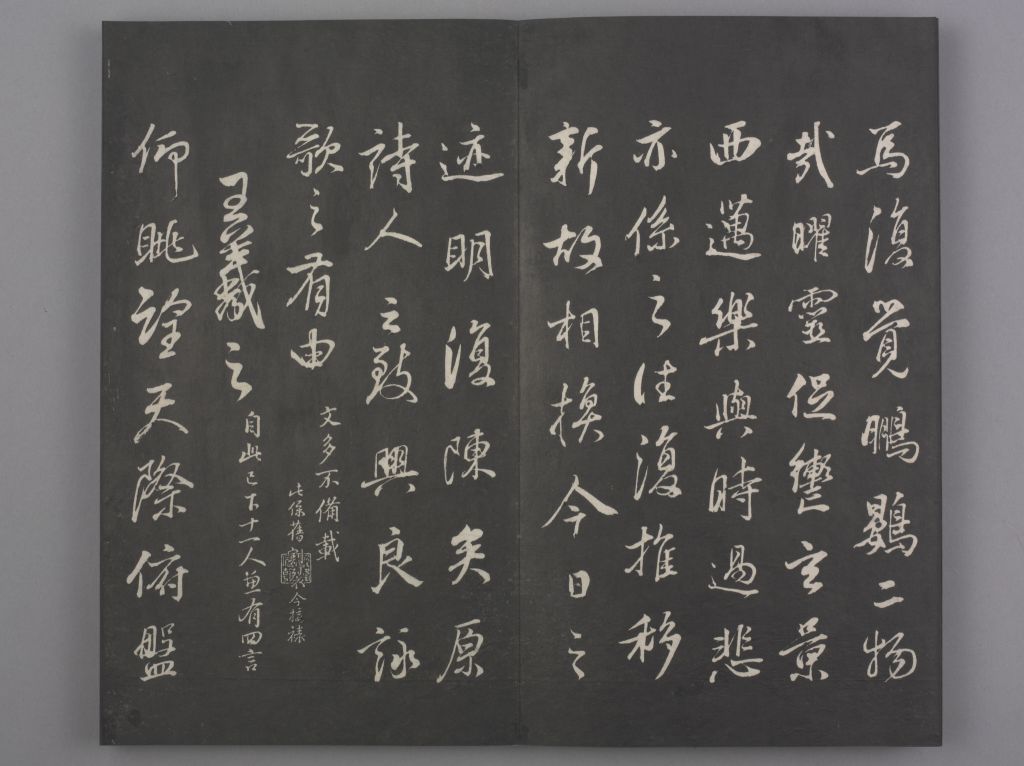 焉復覺鵬鷃二物
哉曜靈促轡玄景
西邁樂與時過悲
亦係之往復推移
新故相換今日之
迹明復陳矣原
詩人之致興良詠
歌之有由
文多不備載
此係舊
今接裱
王羲之
自此已下十一人並有四言
仰眺望天際俯盤